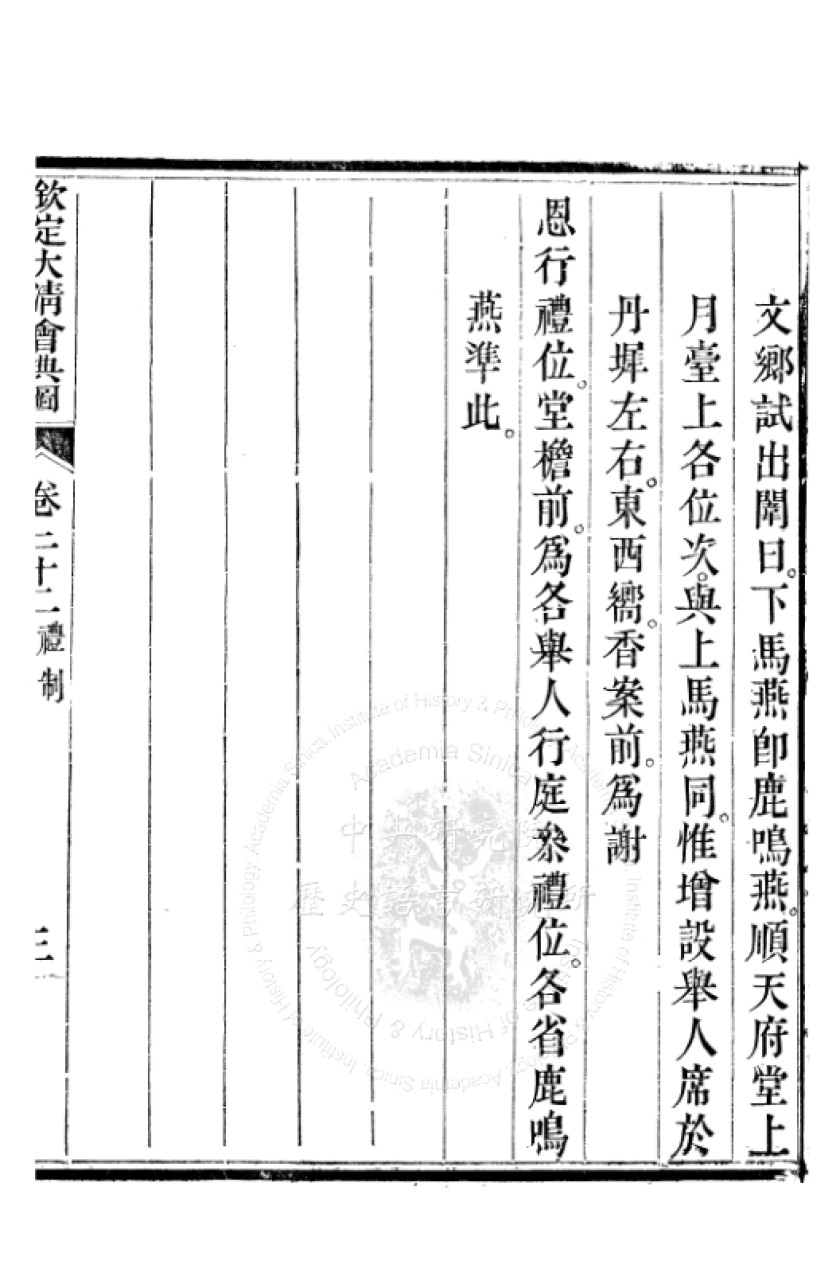 文鄉試出闈日。下馬燕卽鹿鳴燕。順天府堂上
月臺上各位次。與上馬燕同。惟增設舉人席於
丹墀左右。東西嚮。香案前。爲謝
恩行禮位。堂檐前。爲各舉人行庭叅禮位。各省鹿鳴
燕準此。
欽定大清會典圖 卷二十二 禮制 三
中央研究院
歷史語言研究所
Institute of History & Philology, Academia Sinica